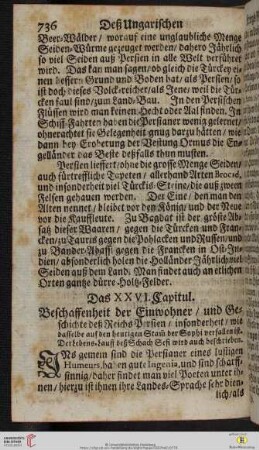 736 Deß Ungarischen
Beer-Wälder / worauf eine unglaubliche Menge
Seiden-Würme gezeuget werden / dahero Jährlich
so viel Seiden auß Persien in alle Welt verführet
wird. Das kan man sagen / ob gleich die Türckey ei-
nen bessern Grund und Boden hat / als Persien / so
ist doch dieses Volckreicher / als Jene / weil die Tür-
cken faul sind / zum Land-Bau. In den Persischen
Flüssen wird man keinen Hecht oder Aal finden. In
Schiff-Fahrten haben die Persianer wenig gelernet /
ohnerachtet sie Gelegenheit gnug darzu hätten / wie
dann bey Eroberung der Vestung Ormus die En-
geländer das Beste deßfalls thun musten.
Persien lieffert / ohne die grosse Menge Seiden /
auch fürtreffliche Tapeten / allerhand Arten
und insonderheit viel Türckis-Steine / die auß zween
Felsen gehauen werden. Der Eine / den man den
Alten nennet / bleibet vor den König / und der Neue
vor die Kauffleute. Zu Bagdat ist der gröste Ab-
satz dieser Waaren / gegen die Türcken und Fran-
cken / zu Tauris gegen die Polacken und Russen / und
zu Bander-Abassi gegen die Francken in Ost-In-
dien / absonderlich holen die Holländer Jährlich viel
Seiden auß dem Land. Man findet auch an etlichen
Orten gantze dürre-Holtz-Felder.
Das XXVI. Capitul.
Beschaffenheit der Einwohner / und Ge-
schichte deß Reichs Persien / insonderheit / wie
dasselbe auf den heutigen Staat der Sophi verfallen ist.
Der Lebens-Lauff deß Schach Sefi wird auch beschrieben.
INs gemein sind die Persianer eines lustigen
Humeurs, haben gute Ingenia, und sind scharff-
sinnig / daher findet man viel Poeten unter ih-
nen / hierzu ist ihnen ihre Landes-Sprache sehr dien-
lich / als